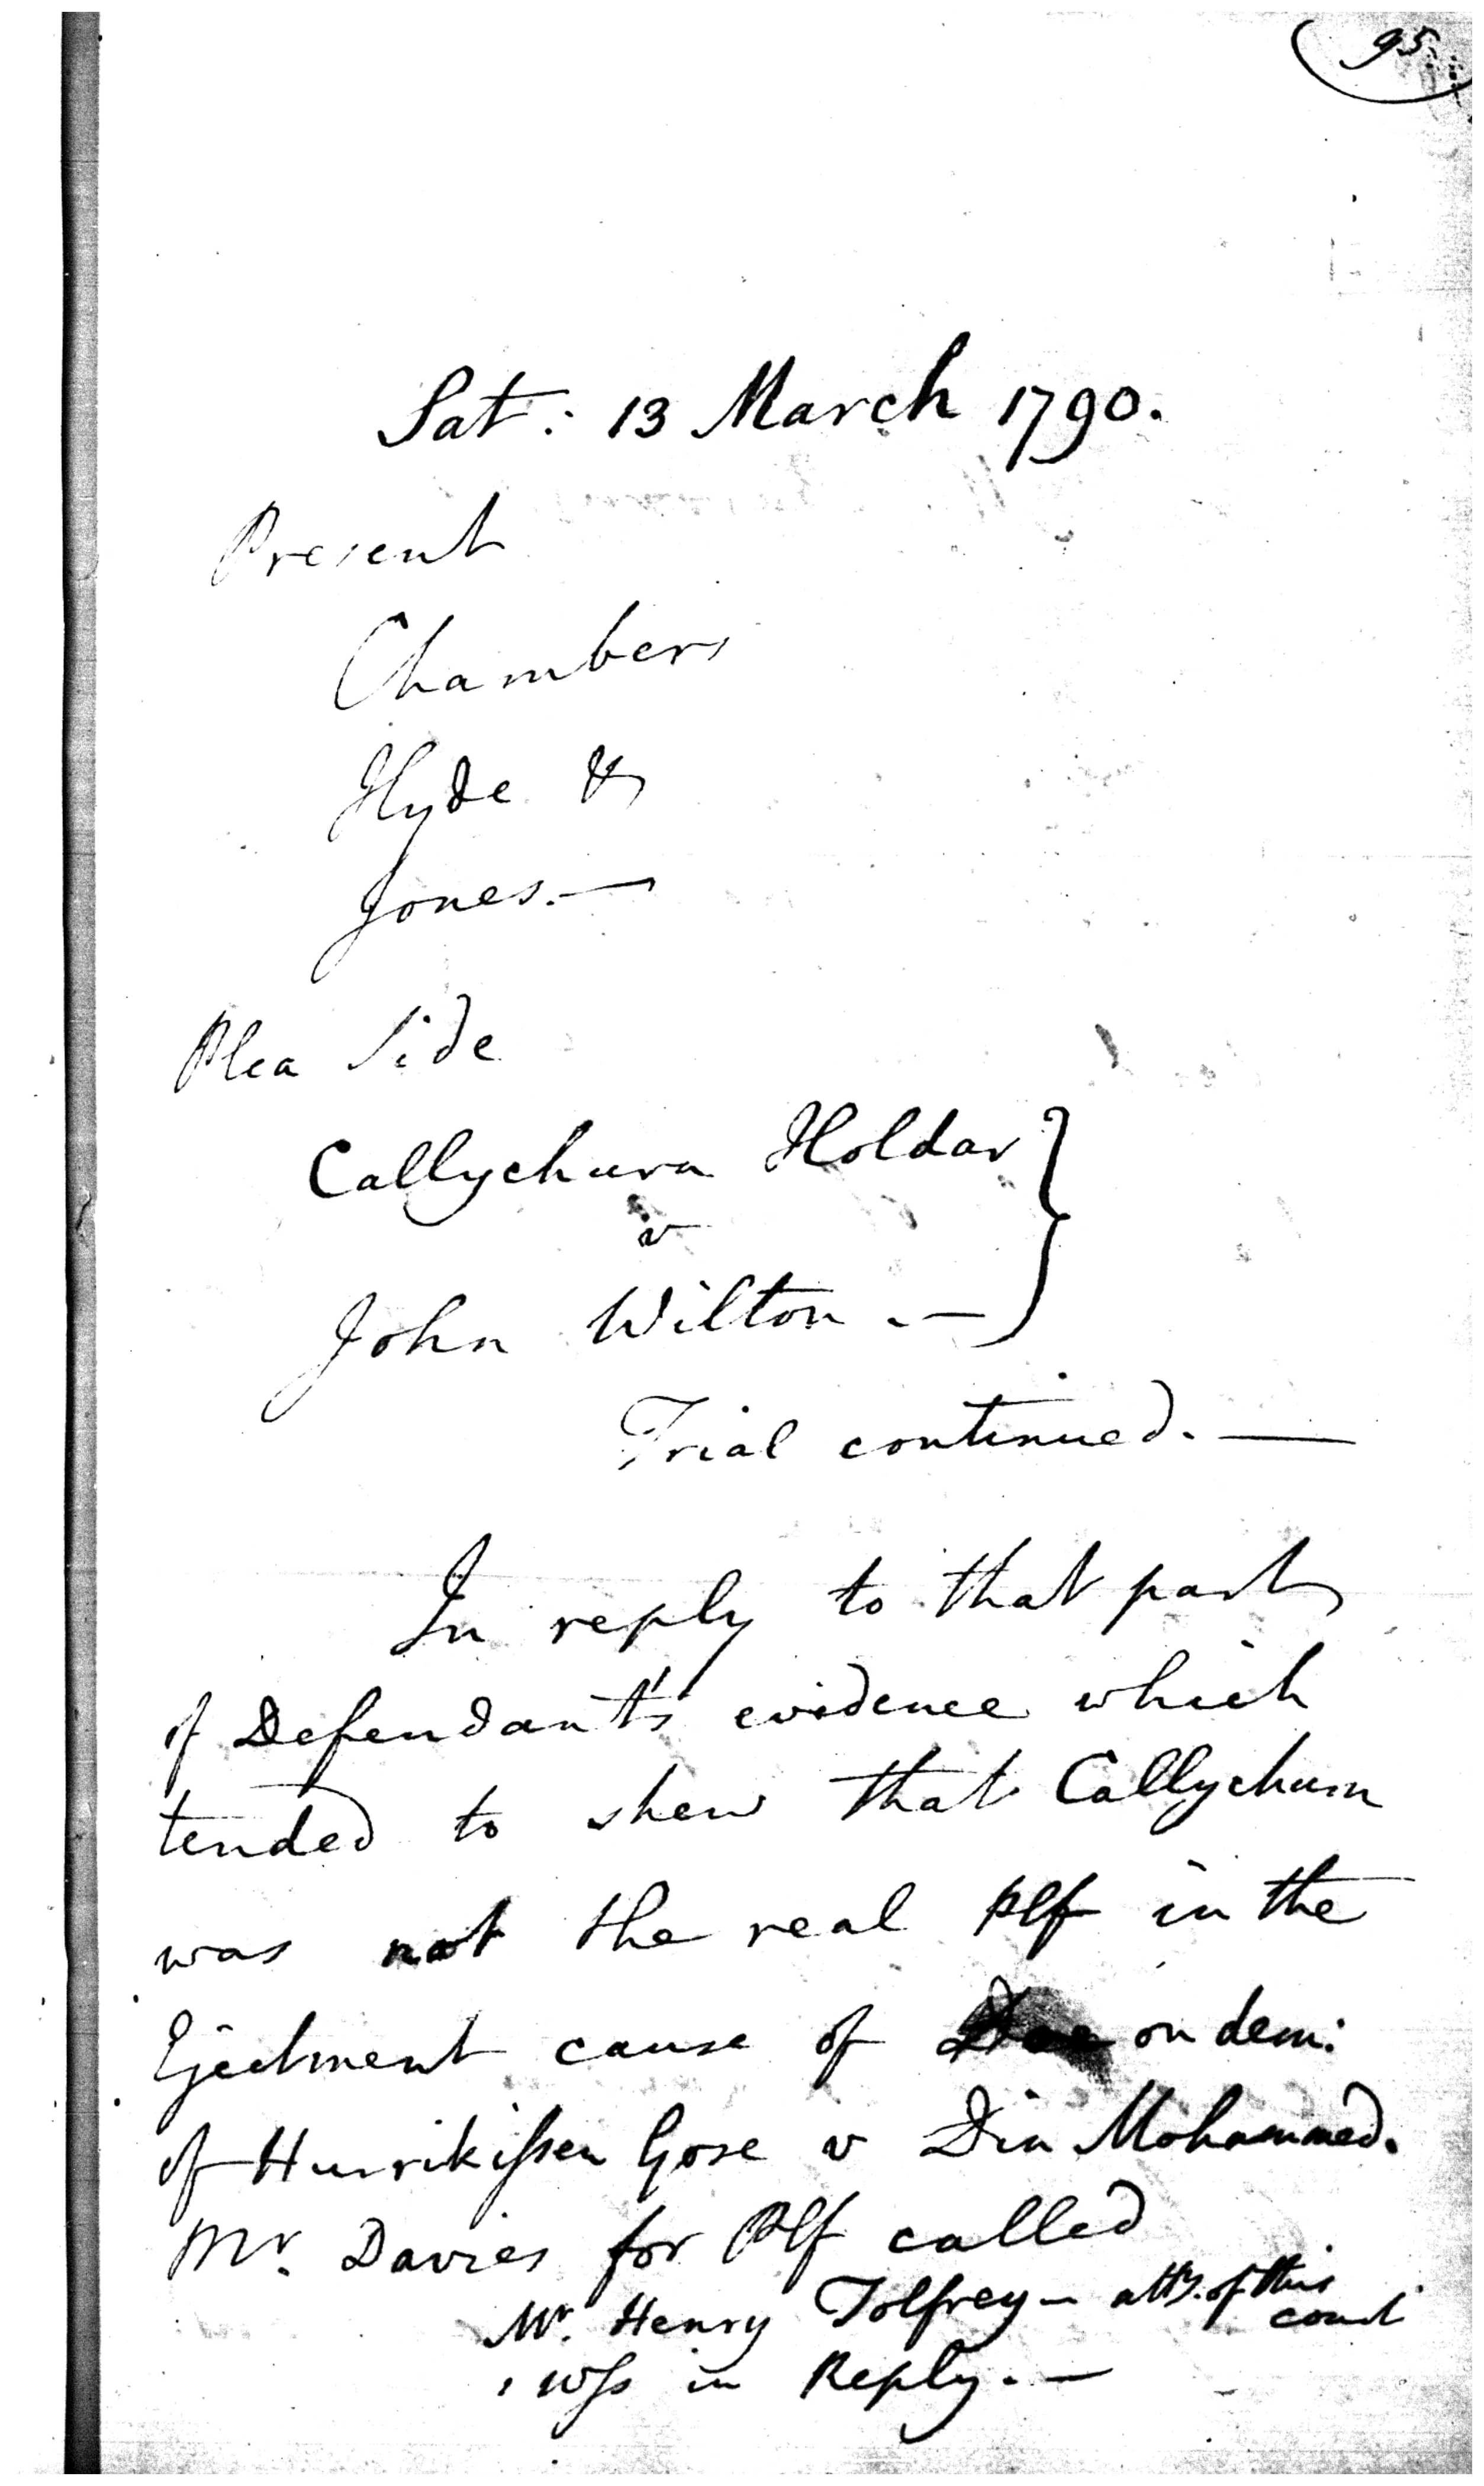 95
Sat: 13 March 1790.
Present
Chambers
Hyde &
Jones.—
Plea Side
Callychurn Holdar
v
John Wilton.—
Trial continued.—
In reply to that part
of Defendant's evidence which
tended to shew that Callychurn
was not the real Plf in the
Ejectment cause of Doe on dem:
of Hurrikissen Gose v Din Mohammed.
Mr. Davies for Plf called
Mr. Henry Tolfrey— atty. of this
court
1 Wss in Reply.—